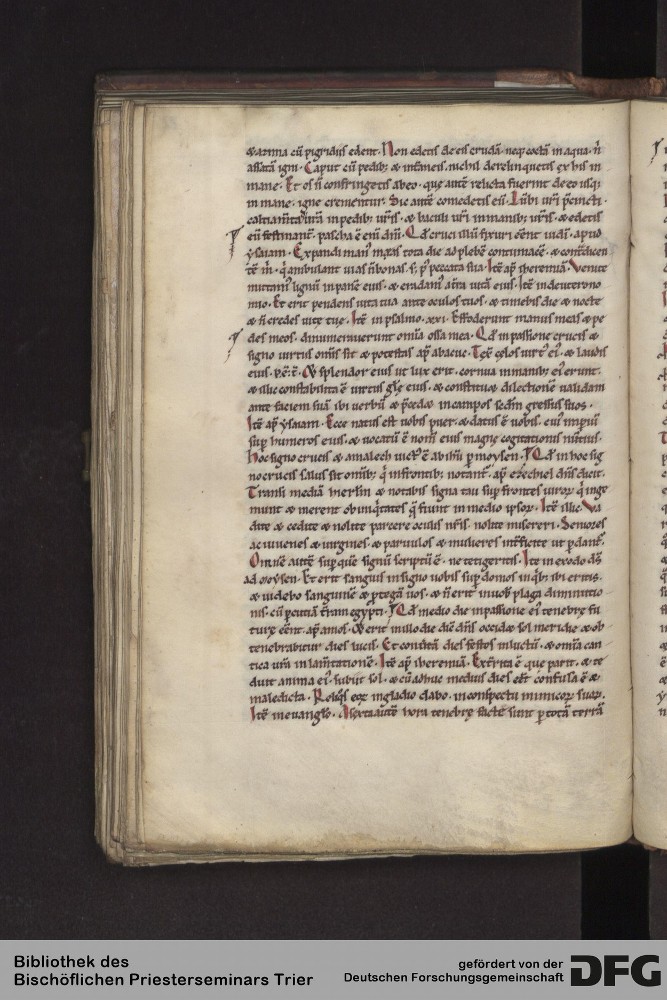 & azima cū pigridiis edent. Non edetis de eis crudā. neq; coctā in aqua. n̄
assatā igni. Caput cū pedib; & intestinis. nichil derelinquetis ex his in
mane. Et os n̄ confringetis ab eo. que autē relicta fuerint de eo usq;
in mane. igne crementur. Sic autē comedetis eū. Lūbi uri p̄cincti.
calciamta urā in pedib; uris. & baculi uri in manib; uris. & edetis
eū festinant. pascha ē enī dm̄. Qd cruci illū fixuri eēnt iudei. apud
ysaiam. Expandi man' meas tota die ad plebē contumacē. & contradicen
tē m. q̄ ambulant uias n̄ bonas. s; p' peccata sua. Itē ap' iheremiā. Venite
mittam' lignū in panē eius. & eradam' a terra uitā eius. Itē in deuterono
mio. Et erit pendens uita tua ante oculos tuos. & timebis die & nocte
& n̄ credes uite tue. Itē in psalmo. xxi. Effoderunt manus meas & pe
des meos. dinumerauerunt omīa ossa mea. Qd in passione crucis &
signo uirtus omīs sit & potestas ap' abacuc. Texit celos uirt' ei'. & laudis
eius. Et splendor eius ut lux erit. cornua in manib; ei' erunt.
& illic constabilita ē uirtus glē eius. & constituit dilectionē ualidam
ante faciem suā ibi uerbū & p̄cedet in campos scdm gressus suos.
Itē ap' ysaiam. Ecce natus est uobis puer. & datus ē uobis. cui' imperiū
sup humeros eius. & uocatū ē nom̄ eius magne cogitationis nūtius.
hoc signo crucis & amalech uict' ē ab ihu p moysen. Qd in hoc sig
no crucis salus sit omīb; q̄ in frontib; notant'. ap' ezechiel dn̄s dicit.
Transi mediā ierlm̄ & notabis signa tau sup frontes uiror' q̄ inge
munt & merent ob iniq̄tates q̄ fiunt in medio ipsor'. Itē illic. Va
dite & cedite & nolite parcere oculis uris. nolite misereri. Seniores
ac iuuenes & uirgines. & paruulos & mulieres intficite ut pdant'.
Omnē autē sup que signū scriptū ē. ne tetigeritis. Itē in exodo ds
ad moysen. Et erit sanguis in signo uobis sup domos in q̄b; ibi eritis.
& uidebo sanguinē & ptegā uos. & n̄ erit in uob' plaga diminutio
nis. cū pcutiā tram egypti. Qd medio die in passione ei' tenebre fu
ture eēnt. ap' amos. & erit in illo die dic̄ dn̄s occidet sol meridie & ob
tenebrabitur dies lucis. Et conūtā dies festos in luctū. & omīa can
tica urā in lamtationē. Itē ap' iheremiā. Extrita ē que parit. & te
duit anima ei'. subiit sol. & cū adhuc medius dies eēt confusa ē &
maledicta. Reliq̄s eor' in gladio dabo. in conspectu inimicor' suor'.
Itē in euanglo. A sexta autē hora tenebre facte sunt p totā terrā
Bibliothek des
Bischöflichen Priesterseminars Trier
gefördert von der
Deutschen Forschungsgemeinschaft
DFG